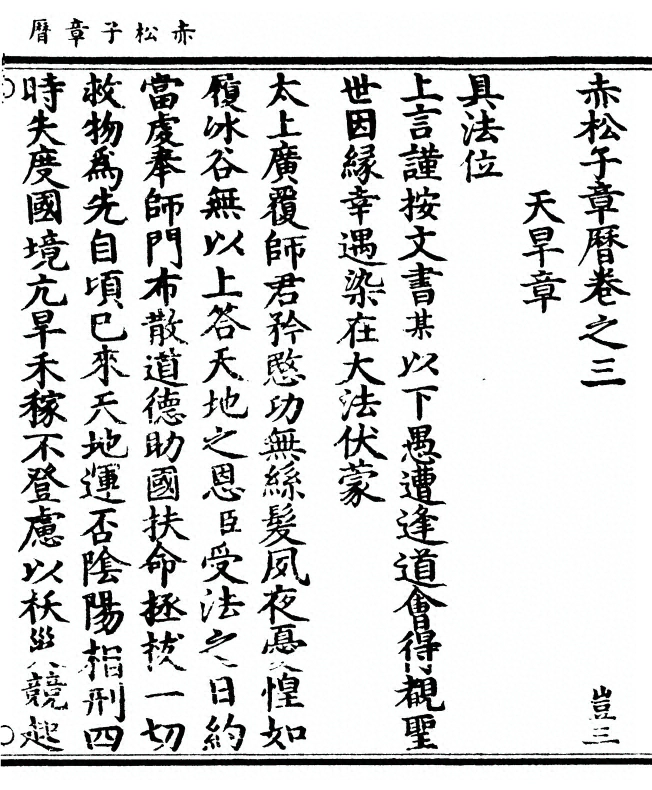 赤松子章曆
赤松子章曆卷之三
豈三
天旱章
具法位
上言謹按文書某以下愚遭逢道會得覩聖
世因緣幸遇染在大法伏蒙
太上廣覆師君矜愍功無絲髮夙夜憂惶如
履冰谷無以上答天地之恩臣受法之日約
當虔奉師門布散道德助國扶命拯拔一切
救物爲先自頃已來天地運否陰陽相刑四
時失度國境亢旱禾稼不登慮以妖災競起